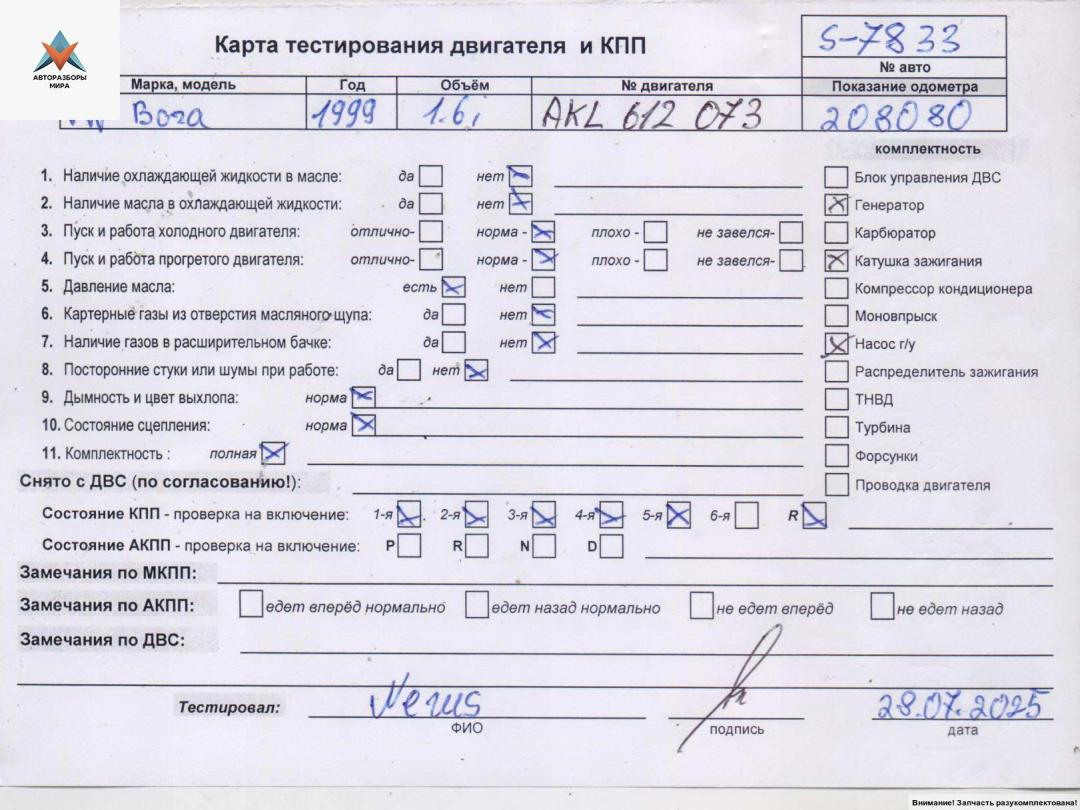 АВТОРАЗБОРЫ
МИРА
Карта тестирования двигателя и КПП
S-7833
№ авто
Марка, модель Год Объём № двигателя Показание одометра
VW Bora 1999 1.6i AKL 612 073 208080
комплектность
1. Наличие охлаждающей жидкости в масле: да нет
Блок управления ДВС
2. Наличие масла в охлаждающей жидкости: да нет
Генератор
3. Пуск и работа холодного двигателя: отлично- норма - плохо - не завелся-
Карбюратор
4. Пуск и работа прогретого двигателя: отлично- норма - плохо - не завелся-
Катушка зажигания
5. Давление масла: есть нет
Компрессор кондиционера
6. Картерные газы из отверстия масляного щупа: да нет
Моновпрыск
7. Наличие газов в расширительном бачке: да нет
Насос г/у
8. Посторонние стуки или шумы при работе: да нет
Распределитель зажигания
9. Дымность и цвет выхлопа: норма
ТНВД
10. Состояние сцепления: норма
Турбина
11. Комплектность : полная
Форсунки
Снято с ДВС (по согласованию!):
Проводка двигателя
Состояние КПП - проверка на включение: 1-я 2-я 3-я 4-я 5-я 6-я R
Состояние АКПП - проверка на включение: P R N D
Замечания по МКПП:
Замечания по АКПП: едет вперёд нормально едет назад нормально не едет вперёд не едет назад
Замечания по ДВС:
Тестировал: 28.07.2025
ФИО подпись дата
Внимание! Запчасть разукомплектована!